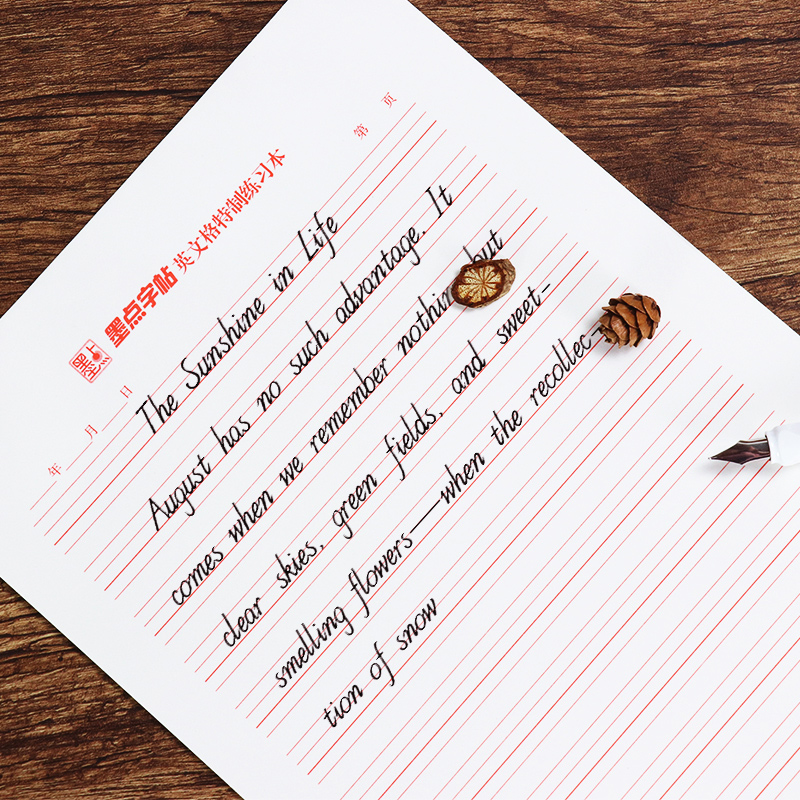 第 页
墨点字帖 英文格特制练习本
年 月 日
The Sunshine in Life
August has no such advantage. It
comes when we remember nothing but
clear skies, green fields, and sweet-
smelling flowers—when the recollec-
tion of snow